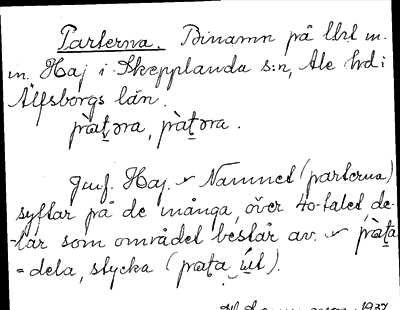 Parterna. Binamn på lht m.
m. Haj i Skepplanda s:n, Ale hd i
Älfsborgs län.
pràṯəra, pràṯəra.
Jmf. Haj. Namnet (parterna)
syftar på de många, över 40-talet de-
lar som området består av. pràṯa
= dela, stycka (praṯa út).
1937